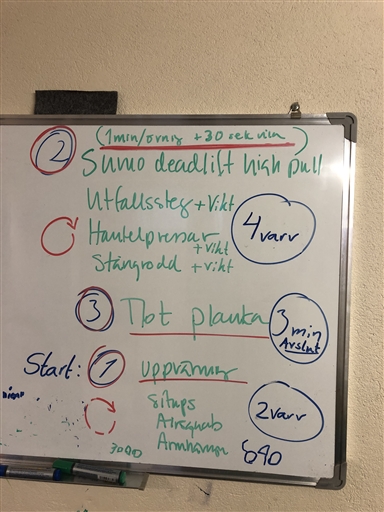 (1min/övning +30 sek vila)
2 Sumo deadlift high pull
Utfallssteg + vikt
Hantelpressar + vikt
Stångrodd + vikt
4 varv
3 Tot planka
3 min Avslut
Start: 1 uppvärmning
situps
Armhävningar
2 varv